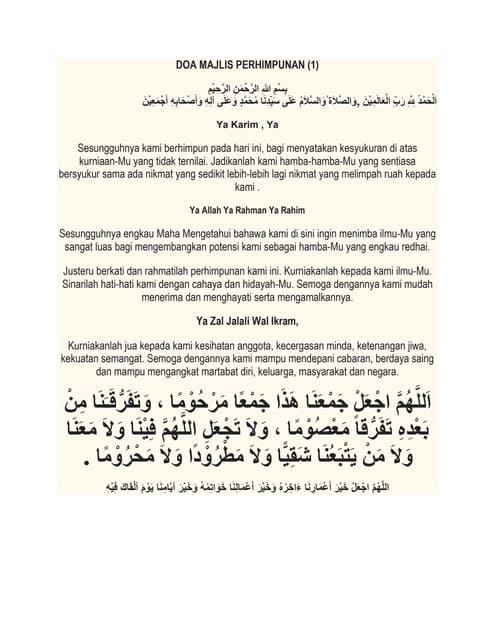 DOA MAJLIS PERHIMPUNAN (1)
بِسْمِ اللهِ الرَّحْمَنِ الرَّحِيْمِ
الْحَمْدُ لِلَّهِ رَبِّ الْعَالَمِيْنَ ,وَالصَّلاَةُ وَالسَّلاَمُ عَلَى سَيِّدِنَا مُحَمَّدٍ وَعَلَى آلِهِ وَأَصْحَابِهِ أَجْمَعِيْنَ
Ya Karim , Ya
Sesungguhnya kami berhimpun pada hari ini, bagi menyatakan kesyukuran di atas
kurniaan-Mu yang tidak ternilai. Jadikanlah kami hamba-hamba-Mu yang sentiasa
bersyukur sama ada nikmat yang sedikit lebih-lebih lagi nikmat yang melimpah ruah kepada
kami .
Ya Allah Ya Rahman Ya Rahim
Sesungguhnya engkau Maha Mengetahui bahawa kami di sini ingin menimba ilmu-Mu yang
sangat luas bagi mengembangkan potensi kami sebagai hamba-Mu yang engkau redhai.
Justeru berkati dan rahmatilah perhimpunan kami ini. Kurniakanlah kepada kami ilmu-Mu.
Sinarilah hati-hati kami dengan cahaya dan hidayah-Mu. Semoga dengannya kami mudah
menerima dan menghayati serta mengamalkannya.
Ya Zal Jalali Wal Ikram,
Kurniakanlah jua kepada kami kesihatan anggota, kecergasan minda, ketenangan jiwa,
kekuatan semangat. Semoga dengannya kami mampu mendepani cabaran, berdaya saing
dan mampu mengangkat martabat diri, keluarga, masyarakat dan negara.
اَللَّهُمَّ اجْعَلْ جَمْعَنَا هَذَا جَمْعًا مَرْحُوْمًا ، وَتَفَرُّقَنَا مِنْ
بَعْدِهِ تَفَرُّقاً مَعْصُوْمًا ، وَلاَ تَجْعَلِ اللَّهُمَّ فِيْنَا وَلاَ مَعَنَا
وَلاَ مَنْ يَتْبَعُنَا شَقِيًّا وَلاَ مَطْرُوْدًا وَلاَ مَحْرُوْمًا .
اللَّهُمَّ اجْعَلْ خَيْرَ أَعْمَارِنَا ءَاخِرَهُ وَخَيْرَ أَعْمَالِنَا خَوَاتِمَهُ وَخَيْرَ أَيَّامِنَا يَوْمَ أَلْقَاكَ فِيْهِ